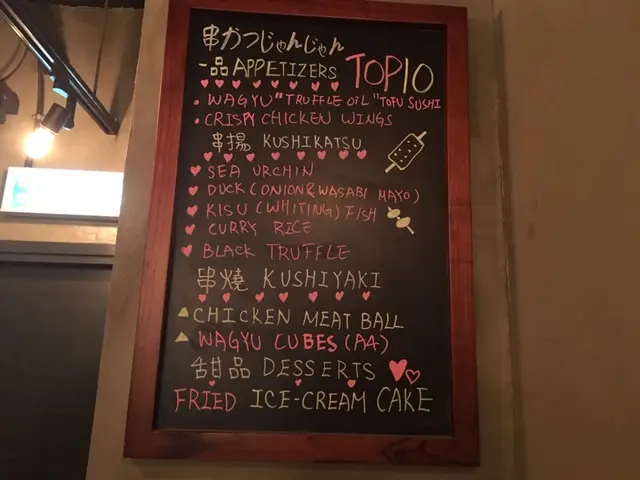 串かつじゃんじゃん
一品 APPETIZERS TOP10
• WAGYU "TRUFFLE OIL" TOFU SUSHI
• CRISPY CHICKEN WINGS
串揚 KUSHIKATSU
SEA URCHIN
DUCK (ONION & WASABI MAYO)
KISU (WHITING) FISH
CURRY RICE
BLACK TRUFFLE
串燒 KUSHIYAKI
CHICKEN MEAT BALL
WAGYU CUBES (A4)
甜品 DESSERTS
FRIED ICE-CREAM CAKE